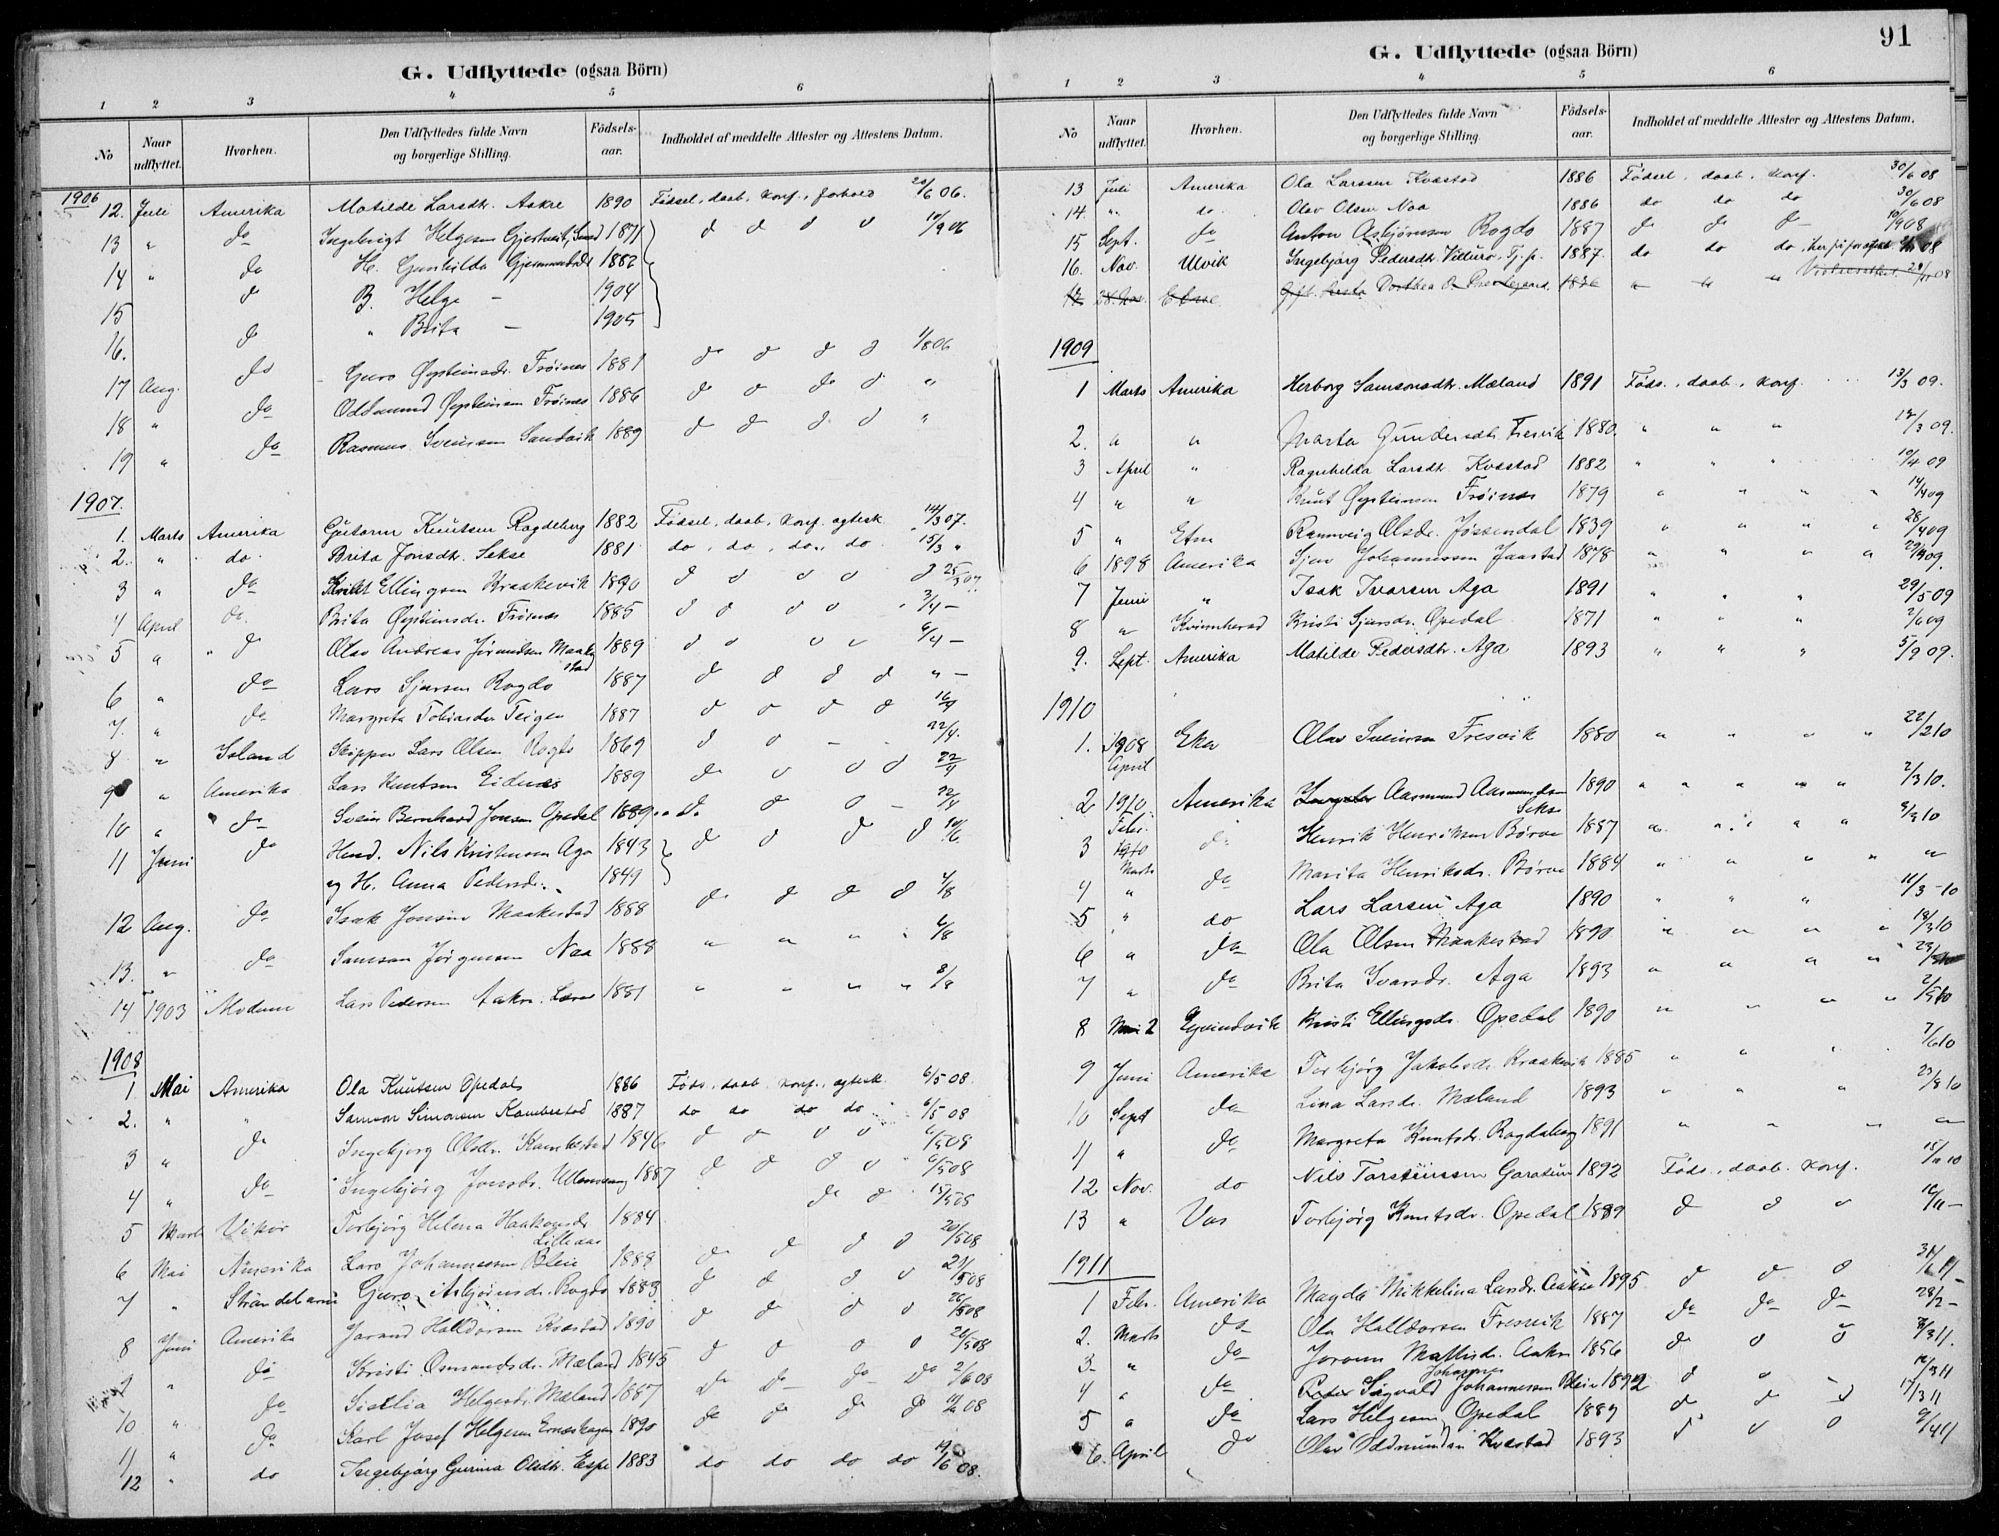 G. Udflyttede (ogsaa Börn)
1 2 3 4 5 6
No Naar udflyttet. Hvorhen. Den Udflyttedes fulde Navn og borgerlige Stilling. Födsels-aar. Indholdet af meddelte Attester og Attestens Datum.
1906
12. Juli Amerika Matilde Larsdtr. Aakre 1890 Födsel, daab, konf., forhold 20/6 06.
13 " do Ingebrigt Helgesen 1871 do do do do 10/9 06
14 " do H. Gunhilda 1882
15 do B. Helge - 1904
16. do " Brita - 1905
17 Aug. do Guro Øysteinsdr. Fröines 1881 do do do do 1/8 06
18 " do Oddmund Øysteinsen Fröines 1886 do do do do "
19 " do Rasmus Sveinsen Sandvik 1889 do do do do "
1907.
1. Marts Amerika Gutorm Knutsen Ragdeberg 1882 Födsel, daab, konf. ogtesk. 14/3 07.
2. " do. Brita Jonsdtr. Sekse 1881 do, do, do, do 15/3 "
3 " do Ellingsen Kraakevik 1890 do do do do 25/3 07
4 April do. Brita Øysteinsdr. Fröines 1885 do do do do 3/4 -
5 " do Olav Andreas Jörundsen Maakestad 1889 do do do do 6/4 -
6 " do Lars Sjursen Rogdo 1887 do do do do " -
7. " do Margreta Tobiasdr. Teigen 1887 do do do do 16/4
8 " Island Skipper Lars Olsen 1869 do do - - 22/4.
9 " Amerika Lars Knutsen Eidnes 1889 do do do do 22/4
10 " do Svein Bernhard Jonsen Opedal 1889 do do do - 22/4
11 Juni do Nils Kristensen Aga 1843 do do do do 10/6
og H. Anna Pedersdr. 1849
12 Aug. do Isak Jonsen Maakestad 1888 do do do do 4/8
13. " do Samson Jörgensen Naa 1888 " " " " 6/8
14 1903 Modum Lars Pedersen Aakre. Lærer 1881 " " " "
1908
1 Mai Amerika Ola Knutsen Opedal 1886 Föds., daab, konf., ogtesk. 6/5 08.
2. " " Samson Simonsen Kambestad 1887 do do do do 6/5 08
3 " do Ingebjörg Olsdtr. Kambestad 1846 do do do do 6/5 08
4 " do Ingebjörg Jonsdr. Ullensvang 1887 do do do do 6/5 08
5 Marts Vikör Torbjörg Helena Haakonsdr. Lilleaas 1884 do do 15/5 08
6 Mai Amerika Lars Johannessen Bleie 1888 do do do do 20/5 08
7 " Strandebarm Guro Asbjörnsdr. Rogdo 1883 do do do do 23/5 08
8 Juni Amerika Jarand Halldorsen Kvæstad 1890 do do do do 26/5 08
9 " do Kristi Osmundsdr. Mæland 1845 do do do do 26/5 08
10 " do Helgesdr. Mæland 1887 do do do do 2/6 08
11 " do Karl Josef Helgesen 1890 do do do do
12 " do Ingebjörg Gurina Olsdtr. Espe 1883 do do do do 19/6 08.
91
G. Udflyttede (ogsaa Börn)
1 2 3 4 5 6
No Naar udflyttet. Hvorhen. Den Udflyttedes fulde Navn og borgerlige Stilling. Födsels-aar. Indholdet af meddelte Attester og Attestens Datum.
13 Juli Amerika Ola Larsen Kvæstad 1886 Födsel, daab, konf. 30/6 08
14. " do. Olav Olsen Naa 1886 do do do 30/6 08
15 Sept. do Anton Asbjörnsen Rogdo 1887 do do do
16. Nov. Ulvik Ingebjörg Pedersdtr. 1887. do do do
17 1836 " " "
1909
1 Marts Amerika Herborg Samsonsdtr. Mæland 1891 Föds., daab, konf. 13/3 09.
2. " " Marta Gundersdtr. Fresvik 1880. " " " 17/3 09.
3 April " Ragnhilda Larsdtr. Kvæstad 1882 " " " 10/4 09
4 " " Knut Øysteinsen Fröines 1879 " " " " 14/4 09
5 " Etne Rannveig Olsdr. Jössendal 1839 " " " " 28/4 09
6 1898 Amerika Sjur Johannessen Jaastad 1878 " " " "
7 Juni " Isak Ivarsen Aga 1891 " " " 29/5 09
8 " Kvinnherad Kristi Sjursdr. Opedal 1871 " " " 2/6 09
9. Sept. Amerika Matilde Pedersdtr. Aga 1893 " " " 5/9 09.
1910
1. 1908 April Eker Olav Sveinsen Fresvik 1880 " " " " 22/2 10
2 1910. Febr. Amerika Aasmund Aasmundsen Sekse 1890 " " " " 2/3 10.
3 1910 Marts do Henrik Henriksen Börve 1887 " " " "
4 " do Marita Henriksdr. Börve 1884 " " " " "
5 " do Lars Larsen Aga 1890 " " " 11/3 -10
6 " do Ola Olsen Maakestad 1890 " " " " 18/3 10
7 " do Brita Ivarsdr. Aga 1893 " " " "
8 Mai 2 Eyvindvik Kristi Ellingsdr. Opedal 1890 " " " " 2/5 10
9 Juni Amerika Torbjörg Jakobsdr. Kraakevik 1885 " " " 7/6 10
10 Sept do Lina Larsdr. Mæland 1893 " " "
11 " do Margreta Knutsdr. Ragdeberg 1891 " " " "
12 Nov. do Nils Torsteinsen Garatun 1892 Föds., daab. konf. 15/11 10
13 " Vos Torbjörg Knutsdr. Opedal 1889 do do do
1911
1 Febr. Amerika Magda Mikkelina Larsdr. Aakre 1895 do do do
2. Marts do Ola Halldorsen Fresvik 1887 do do do 28/2 -
3 " do Joronn Mattisdr. Aakre 1856 do do do
4 " do Peter Sigvald Johannes Johannessen Bleie 1892 do do
5 " do Lars Helgesen Opedal 1889 do do do 17/3 11
6. April do Olav Oddmundsen Kvæstad 1893 do do do